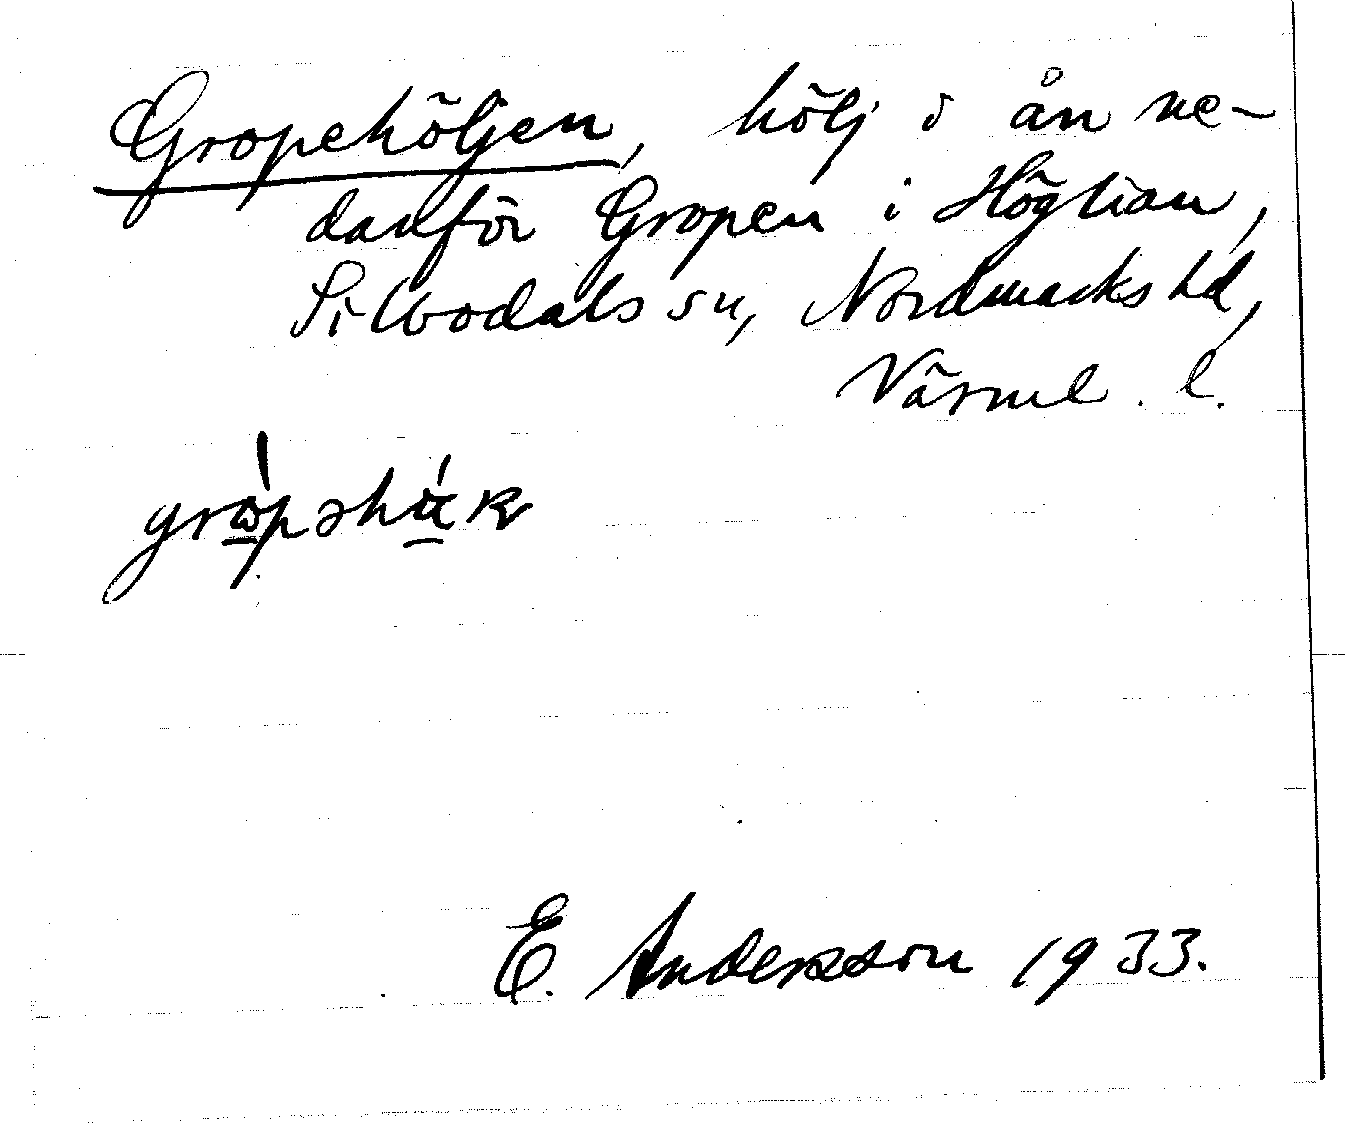 Gropehöljen, hölj i ån ne-
danför Gropen i Höglian,
Silbodals sn, Nordmarks hd,
Värml. l.
E. Andersson 1933.